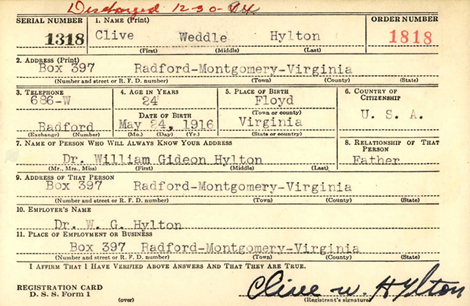 Discharged 12-30-44
SERIAL NUMBER 1. NAME (Print) ORDER NUMBER
1318 Clive Weddle Hylton 1818
(First) (Middle) (Last)
2. ADDRESS (Print)
Box 397 Radford-Montgomery-Virginia
(Number and street or R. F. D. number) (Town) (County) (State)
3. TELEPHONE 4. AGE IN YEARS 5. PLACE OF BIRTH 6. COUNTRY OF CITIZENSHIP
686-W 24 Floyd
(Town or county)
DATE OF BIRTH U. S. A.
Radford May 24, 1916 Virginia
(Exchange) (Number) (Mo.) (Day) (Yr.) (State or country)
7. NAME OF PERSON WHO WILL ALWAYS KNOW YOUR ADDRESS 8. RELATIONSHIP OF THAT PERSON
Dr. William Gideon Hylton Father
(Mr., Mrs., Miss) (First) (Middle) (Last)
9. ADDRESS OF THAT PERSON
Box 397 Radford-Montgomery-Virginia
(Number and street or R. F. D. number) (Town) (County) (State)
10. EMPLOYER'S NAME
Dr. W. G. Hylton
11. PLACE OF EMPLOYMENT OR BUSINESS
Box 397 Radford-Montgomery-Virginia
(Number and street or R. F. D. number) (Town) (County) (State)
I AFFIRM THAT I HAVE VERIFIED ABOVE ANSWERS AND THAT THEY ARE TRUE.
REGISTRATION CARD
D. S. S. Form 1 (over) Clive W. Hylton
(Registrant's signature)